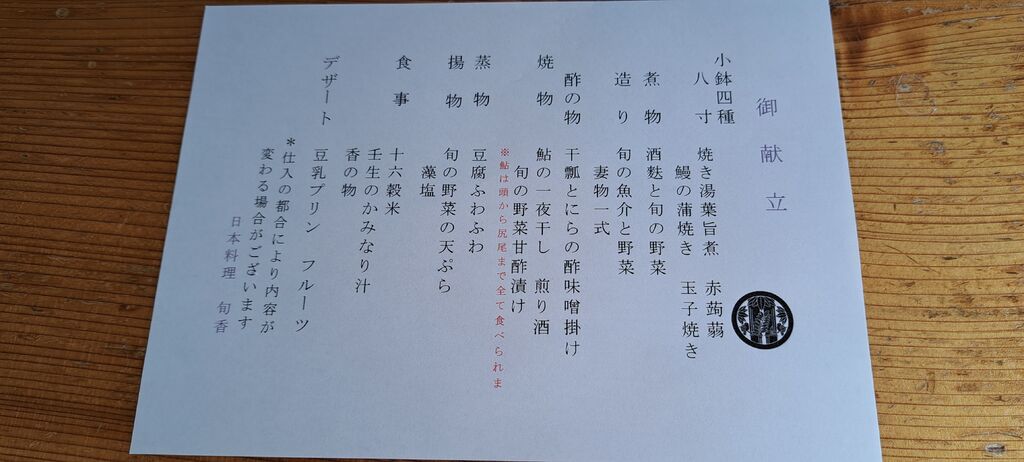 御献立
小鉢四種
八寸 焼き湯葉旨煮 赤蒟蒻
鰻の蒲焼き 玉子焼き
煮物 酒麩と旬の野菜
造り 旬の魚介と野菜
妻物一式
酢の物 干瓢とにらの酢味噌掛け
焼物 鮎の一夜干し 煎り酒
旬の野菜甘酢漬け
※鮎は頭から尻尾まで全て食べられま
蒸物 豆腐ふわふわ
揚物 旬の野菜の天ぷら
藻塩
食事 十六穀米
壬生のかみなり汁
香の物
デザート 豆乳プリン フルーツ
*仕入の都合により内容が
変わる場合がございます
日本料理 旬香